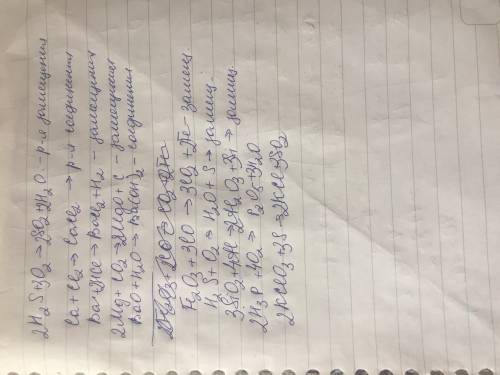 2H₂S+3O₂→2SO₂+2H₂O - р-я замещения
Ca+Cl₂→CaCl₂ → р-я соединения
Ba+2HCl→BaCl₂+H₂ - замещения
2Mg+CO₂→2MgO+C - замещения
BaO+H₂O→Ba(OH)₂ - соединения
Fe₂O₃+3CO→3CO₂+2Fe - замещ.
H₂S+O₂→H₂O+S→замещ.
3SiO₂+4Al→2Al₂O₃+3Si→замещ
2H₃P+4O₂→P₂O₅+3H₂O
2KClO₃+3S→2KCl+3SO₂